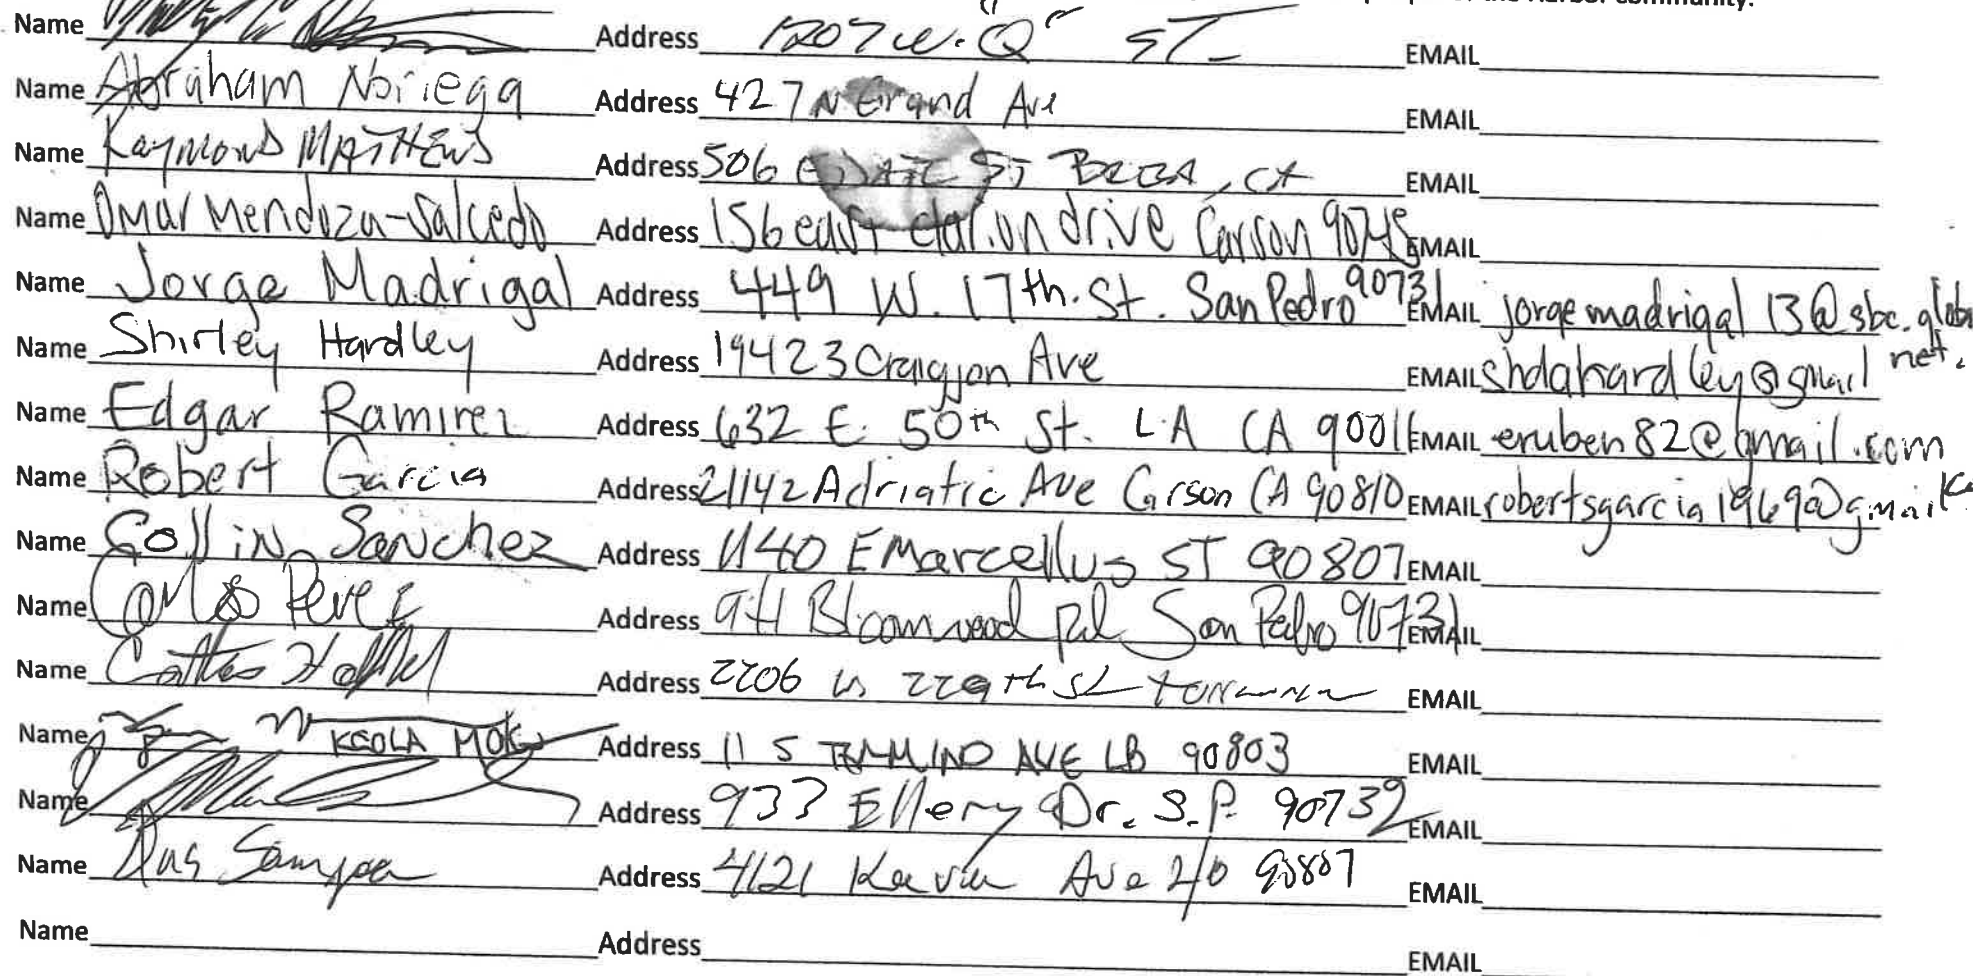 the Harbor community.
Name Address 1207 W. "Q" ST EMAIL
Name Abraham Noriega Address 427 N Grand Ave EMAIL
Name Raymond MATTHEWS Address 506 E DATE ST BREA, CA EMAIL
Name Omar Mendoza-Salcedo Address 156 east clarion drive Carson 90745 EMAIL
Name Jorge Madrigal Address 449 W. 17th. St. San Pedro 90731 EMAIL jorgemadrigal13@sbc.global
net.
Name Shirley Hardley Address 19423 Ave EMAIL shdahardley@gmail
Name Edgar Ramirez Address 632 E. 50th St. LA CA 90011 EMAIL eruben82@gmail.com
Name Robert Garcia Address 21142 Adriatic Ave Carson CA 90810 EMAIL robertsgarcia1969@gmail
Name Collin Sanchez Address 1140 E Marcellus ST 90807 EMAIL
Name Carlos Perez Address Bloomwood Rd San Pedro 90731 EMAIL
Name Address 2206 W 229th St EMAIL
Name KEOLA Address 11 S TERMINO AVE LB 90803 EMAIL
Name Address 933 Ellery Dr. S.P. 90732 EMAIL
Name Address 4121 Ave 90807 EMAIL
Name Address EMAIL